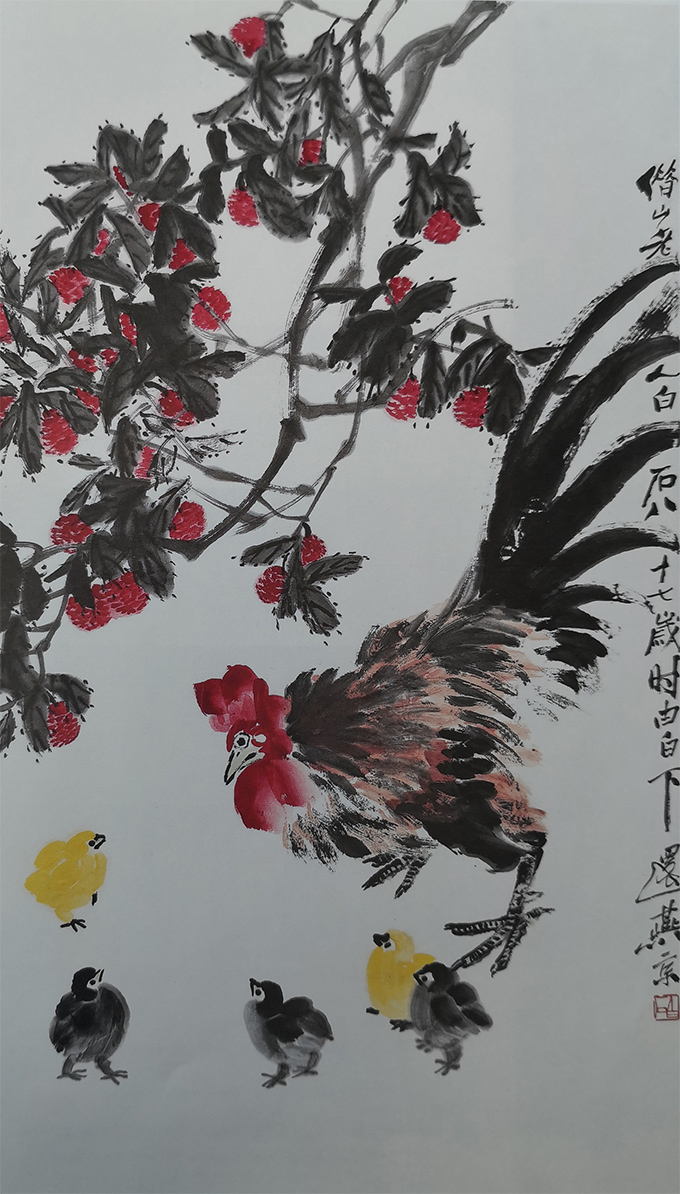 借山老人白石八十七岁时由白下還燕京